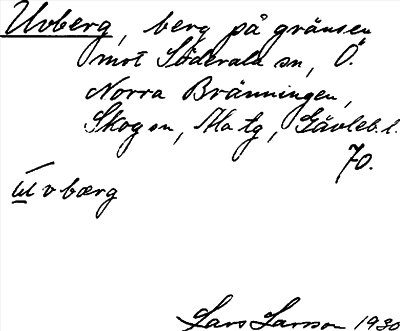 Uvberg, berg på gränsen
mot Söderala sn, Ö.
Norra Bränningen,
Skog sn, Ala tg, Gävleb. l.
70.
ūvbærg
Lars Larsson 1930